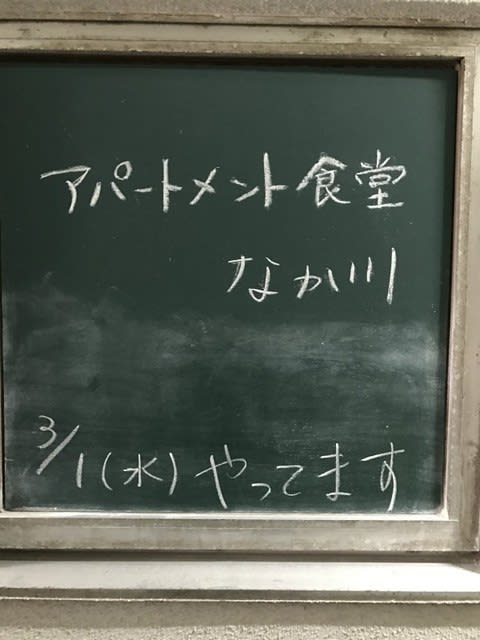 アパートメント食堂
なか川
3/1(水)やってます